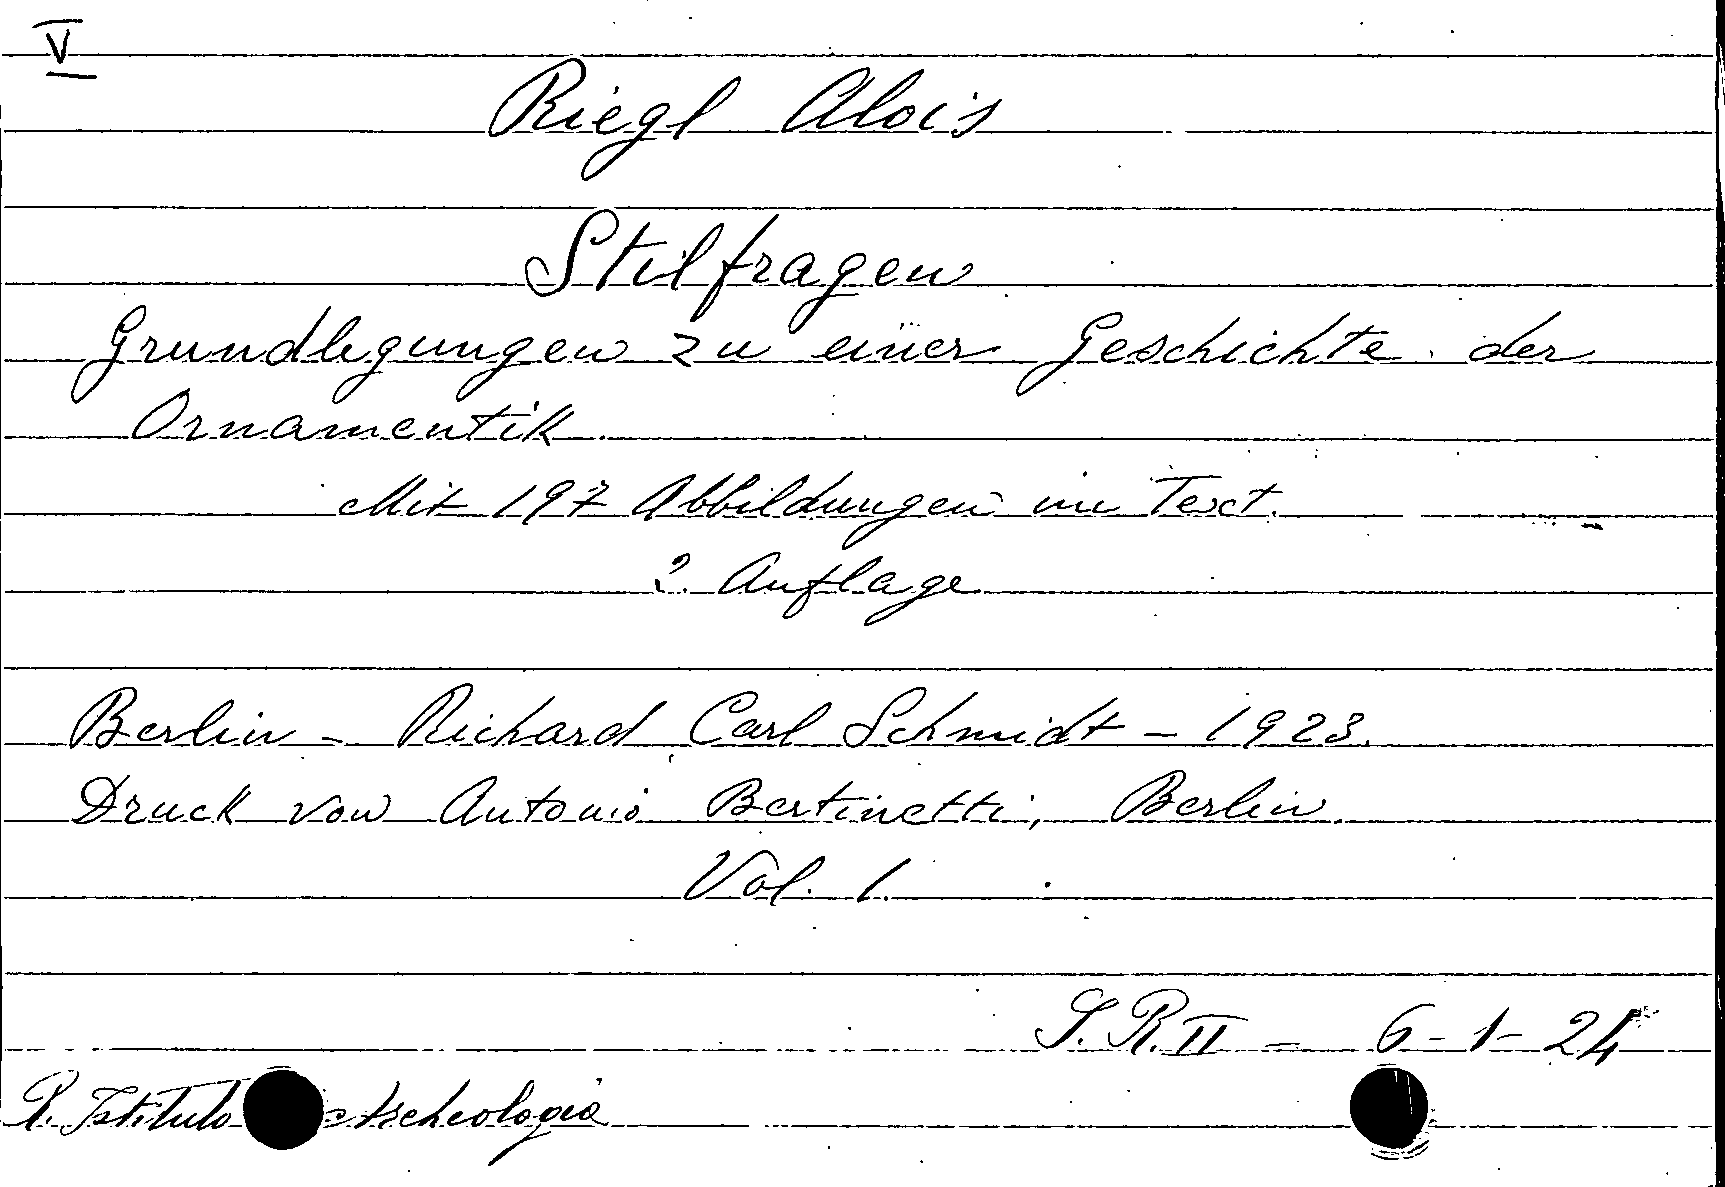 V
Riegl Alois
Stilfragen
Grundlegungen zu einer Geschichte der
Ornamentik.
Mit 197 Abbildungen im Text.
2. Auflage
Berlin - Richard Carl Schmidt - 1923.
Druck von Antonio Bertinetti, Berlin.
Vol. 1.
S. R. II - 6-1-24
R. Istituto Archeologia